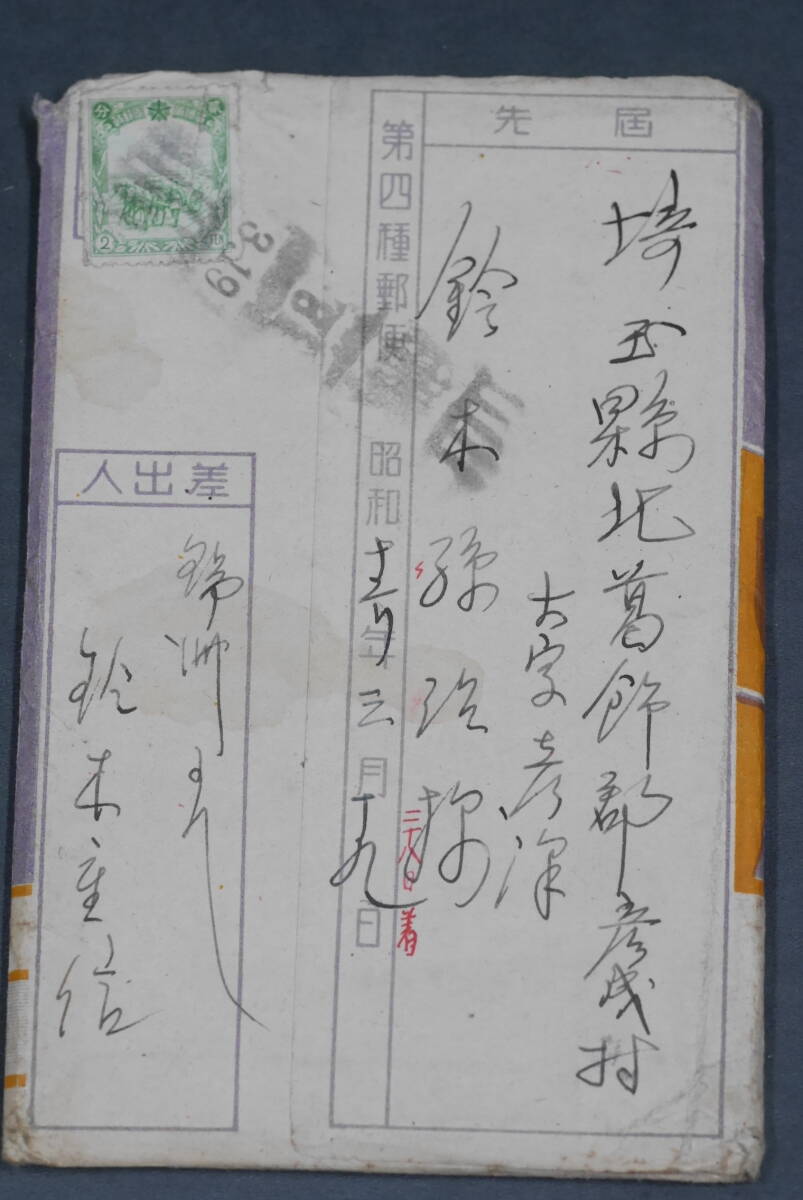 届先
埼玉縣北葛飾郡彦成村
大字彦沢
鈴木孫治様
二十八日着
第四種郵便 昭和 年三月十九日
3.19
差出人
錦州にて
鈴木重信
2